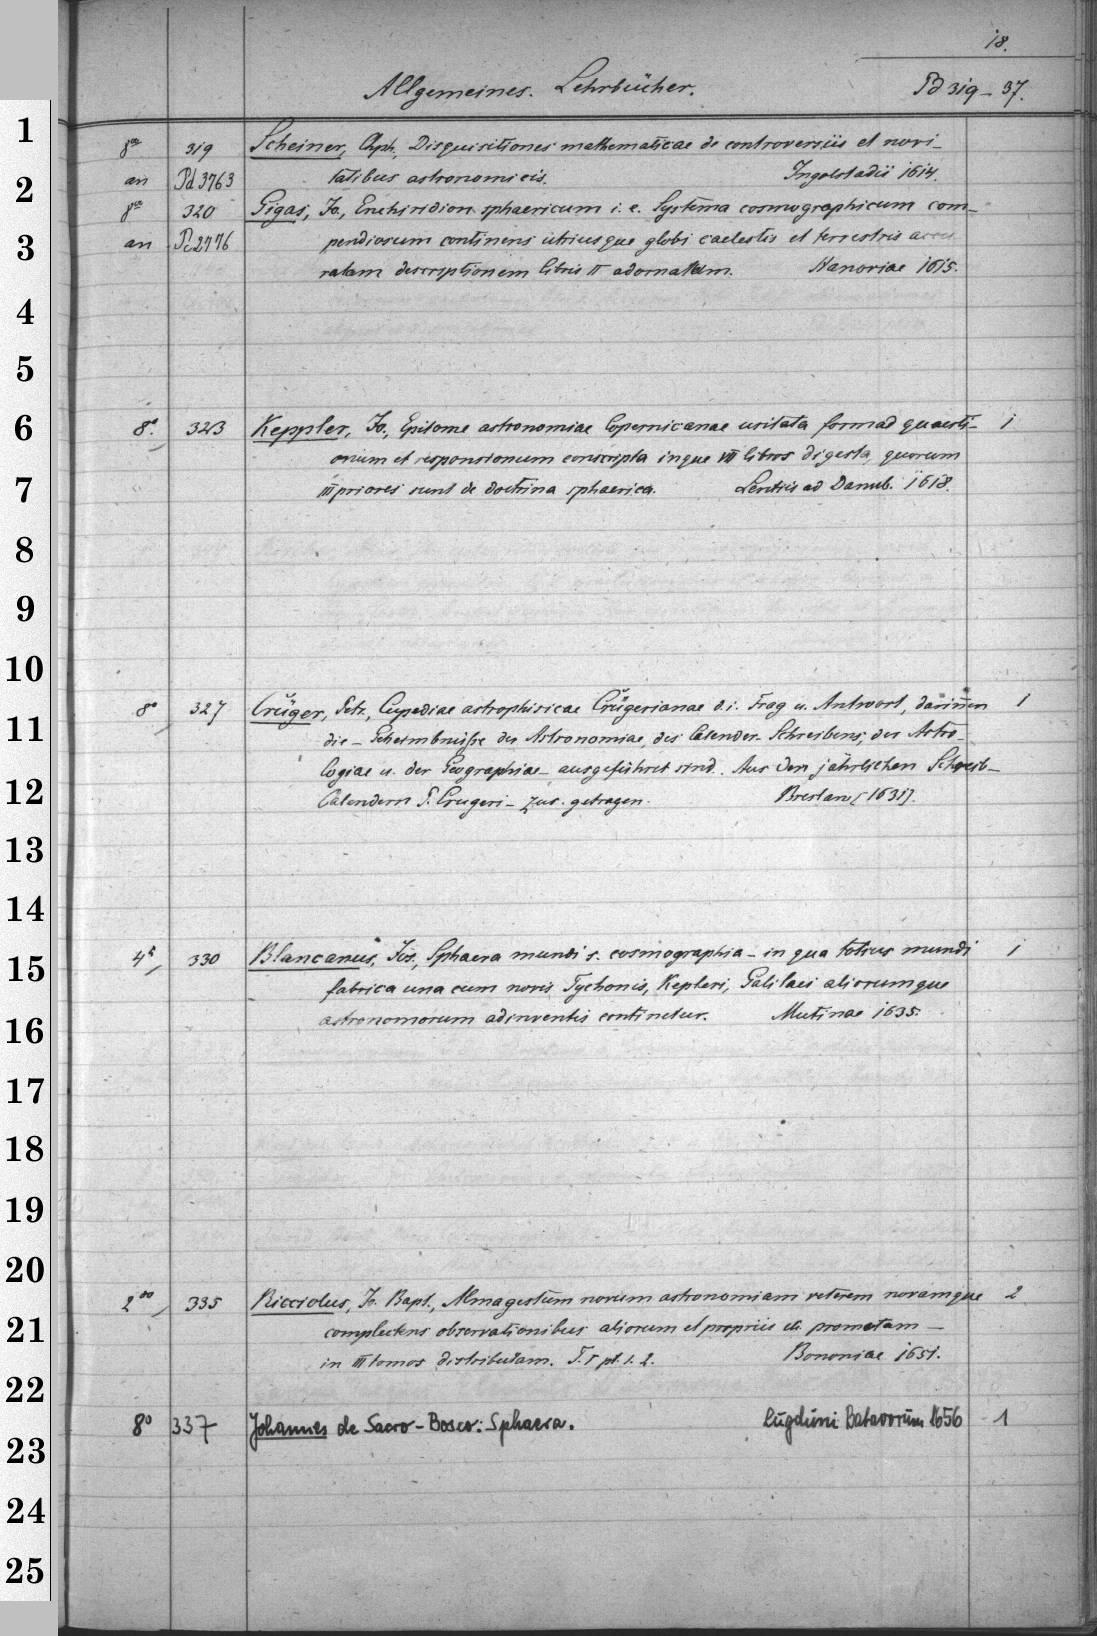 18.
Allgemeines. Lehrbücher. Pd 319 - 37.
1
8° 319 Scheiner, Chph., Disquisitiones mathematicae de controversiis et novi-
2 an Pd 3763 tatibus astronomicis. Ingolstadii 1614.
8° 320 Gigas, Jo., Enchiridion sphaericum i. e. Systema cosmographicum com-
3 an Pc 2776 pendiosum continens utriusque globi caelestis et terrestris accu
ratam descriptionem libris II adornatum. Hanoviae 1615.
4
5
6 8°. 323 Keppler, Jo., Epitome astronomiae Copernicanae usitata forma quaesti- 1
onum et responsionum conscripta inque VII libros digesta, quorum
7 III priores sunt de doctrina sphaerica. Lentiis ad Danub. 1618.
8
9
10
8° 327 Crüger, Petr., Cupediae astrophisicae Crügerianae d. i. Frag u. Antwort, darinnen 1
11 die - Geheimbnüsse der Astronomiae, des Calender-Schreibens, der Astro-
logiae u. der Geographiae - ausgeführet sind. Aus den jährlichen Schreib-
12 Calendern P. Crugeri - zus. getragen. Breslau [1631].
13
14
15 4° 330 Blancanus, Jos., Sphaera mundi s. cosmographia - in qua totius mundi 1
fabrica una cum novis Tychonis, Kepleri, Galilaei aliorumque
16 astronomorum adinventis continetur. Mutinae 1635.
17
18
19
20
2° 335 Ricciolus, Jo. Bapt., Almagestum novum astronomiam veterem novamque 2
21 complectens observationibus aliorum et propriis etc. promotam -
in III tomos distributam. T. I pt. 1. 2. Bononiae 1651.
22
8° 337 Johannes de Sacro-Bosco: Sphaera. Lugduni Batavorum 1656 - 1
23
24
25